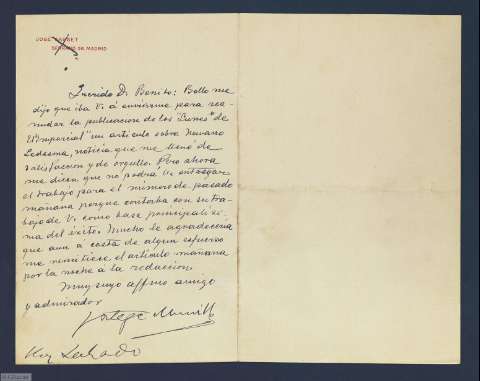 JOSÉ LAORET
SENADO DE MADRID
Querido D. Benito: Bello me
dijo que iba V. á enviarme para rea-
nudar la publicación de los "Lunes" de
"El Imparcial" un artículo sobre Navarro
Ledesma, noticia que me llenó de
satisfacción y de orgullo. Pero ahora
me dicen que no podrá V. entregar
el trabajo para el número de pasado
mañana porque contaba con su tra-
bajo de V. como base principalísi-
ma del éxito. Mucho le agradecería
que aun á costa de algun esfuerzo
me remitiese el artículo mañana
por la noche á la redacción.
Muy suyo affmo amigo
y admirador
Ortega Munilla
Hoy Sabado